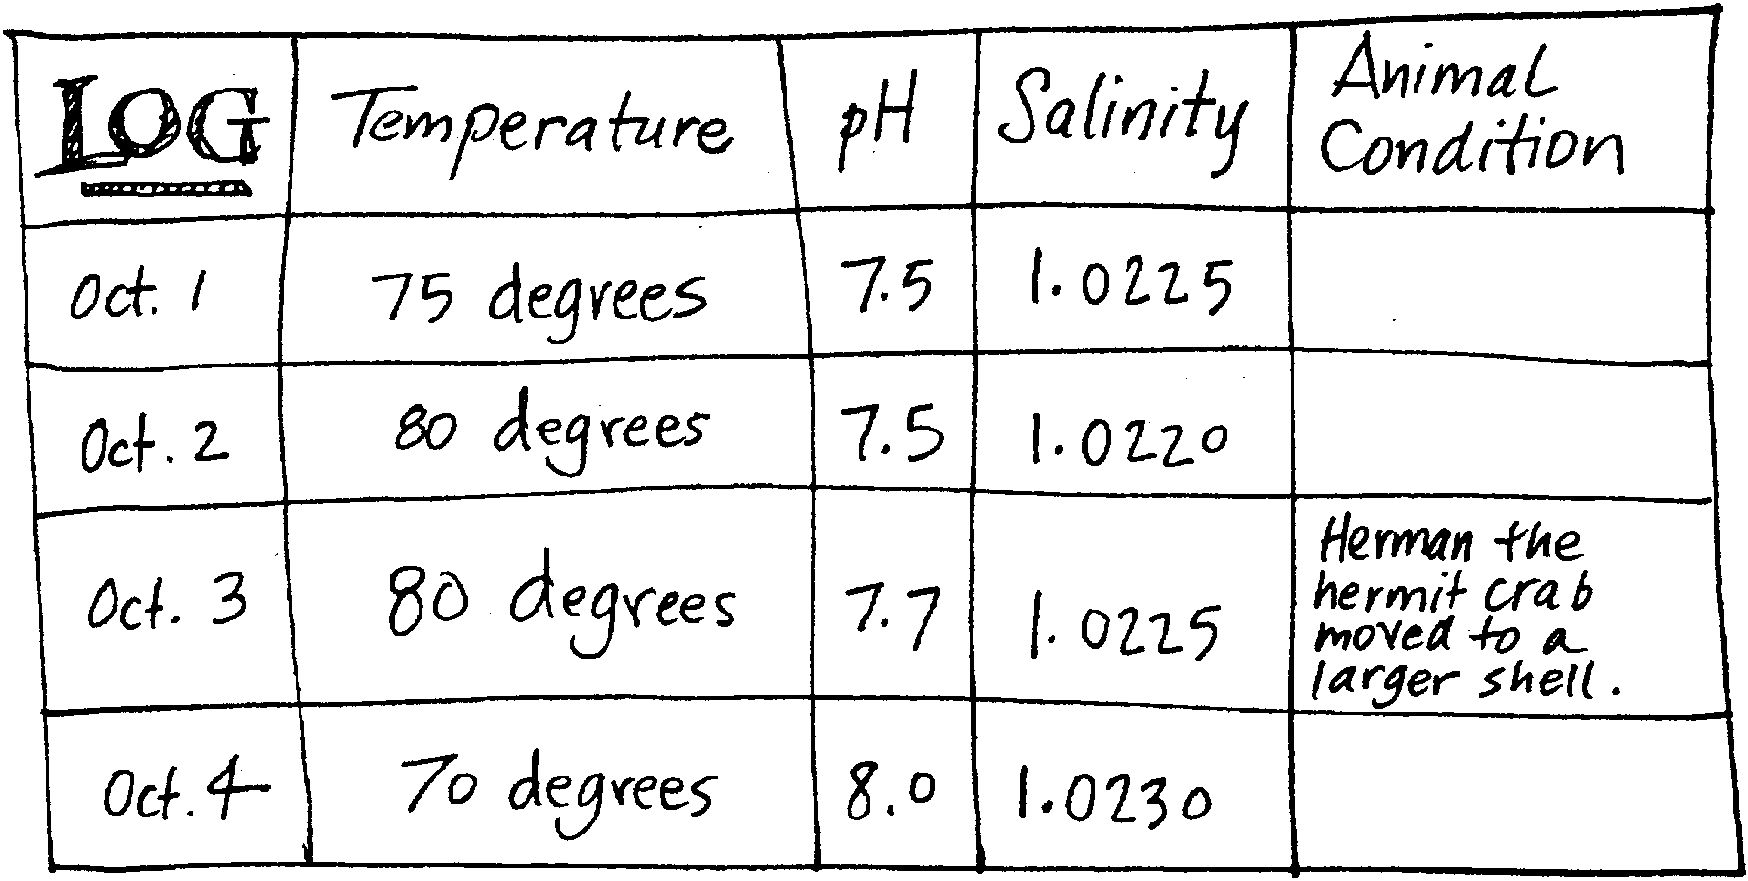 LOG Temperature pH Salinity Animal
Condition
Oct. 1 75 degrees 7.5 1.0225
Oct. 2 80 degrees 7.5 1.0220
Oct. 3 80 degrees 7.7 1.0225 Herman the
hermit crab
moved to a
larger shell.
Oct. 4 70 degrees 8.0 1.0230